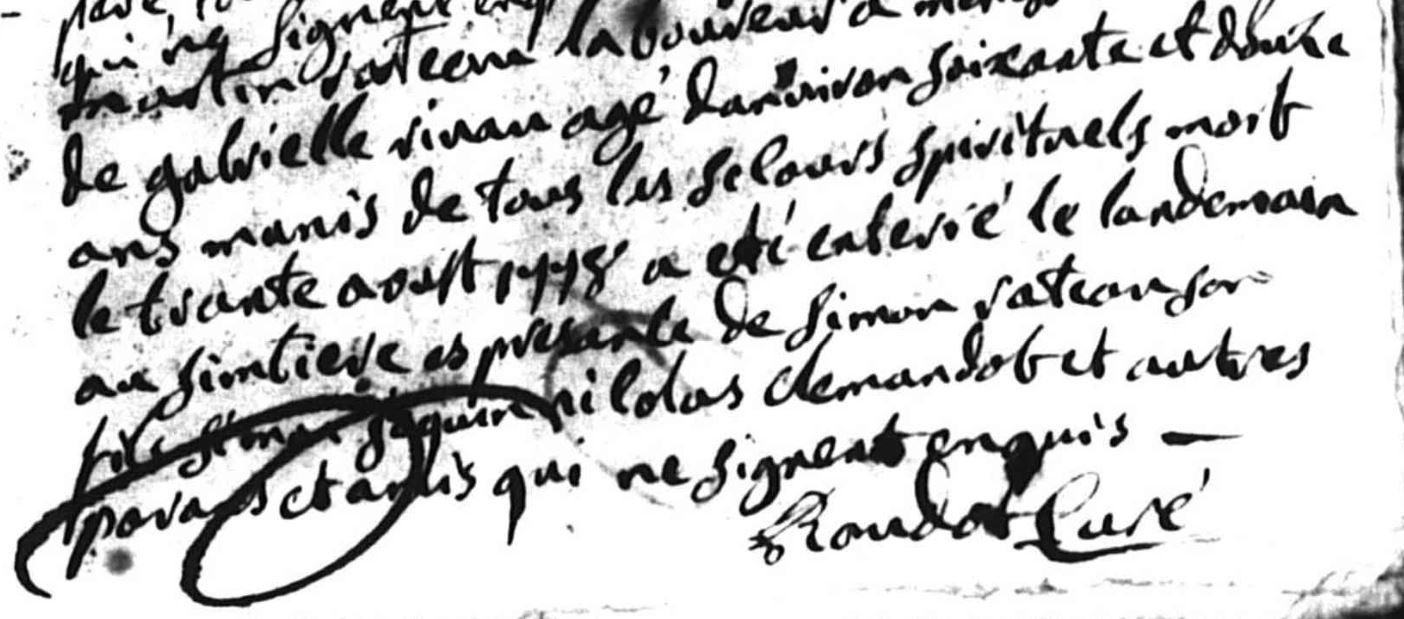 qui ne signent
martin rateau laboureur a
de gabrielle rinau agé danviron soixante et douze
ans munis de tous les secours spirituels mort
le trante aoust 1778 a eté enterré le landemain
au simtiere es presence de simon rateau son
fils simon seguin nicolas clemandot et autres
parans et amis qui ne signent enquis —
Roudot Curé